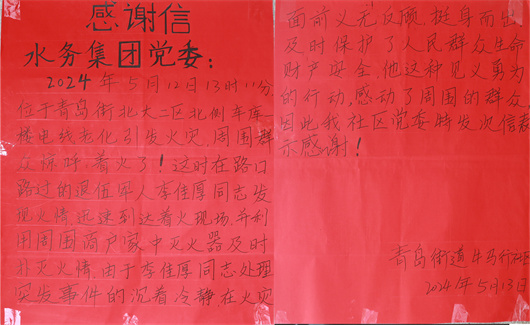 感谢信
水务集团党委：
2024年5月12日13时11分,
位于青岛街北大二区北侧车库
楼电线老化,引发火灾,周围群
众惊呼,着火了!这时在路口
路过的退伍军人李佳厚同志发
现火情迅速到达着火现场,并利
用周围商户家中灭火器及时
扑灭火情,由于李佳厚同志处理
突发事件的沉着冷静在火灾
面前义无反顾,挺身而出
及时保护了人民群众生命
财产安全.他这种见义勇为
的行动,感动了周围的群众
因此我社区党委特发次信表
示感谢!
青岛街道牛马行社区
2024年5月13日